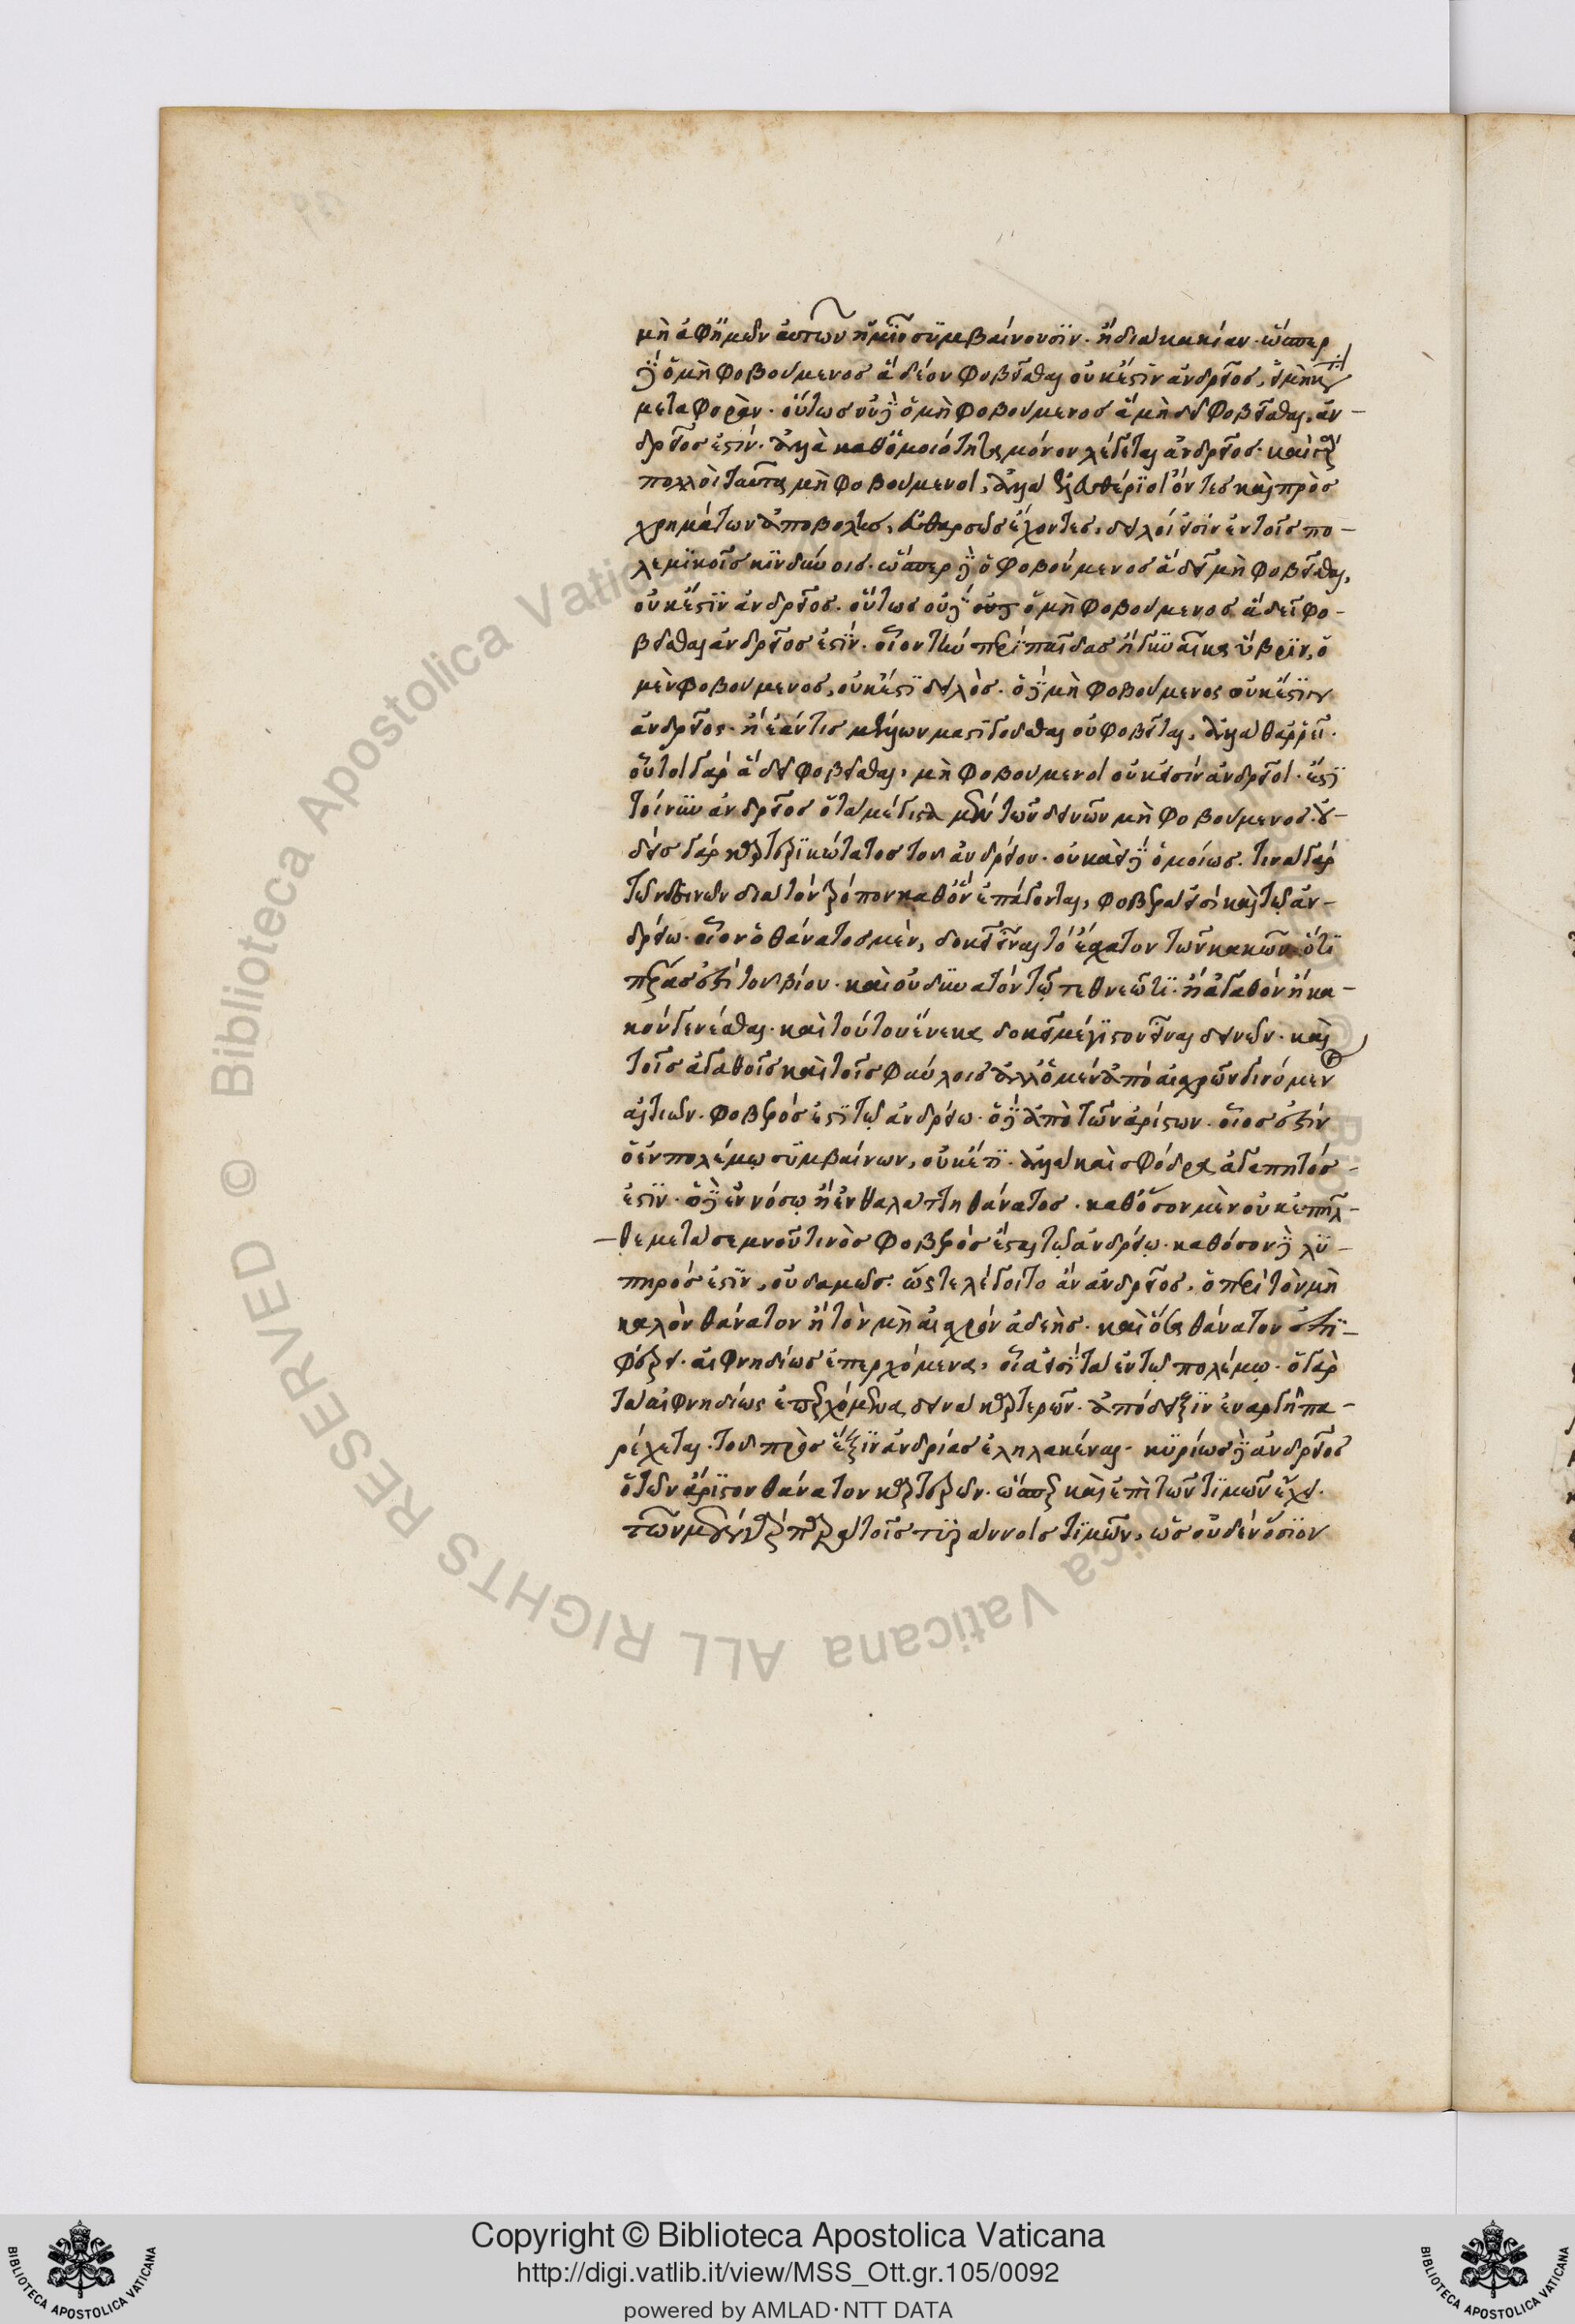 μὴ ἀφ' ἡμῶν αὐτῶν ἡμῖν συμβαίνουσιν. ἢ διὰ κακίαν. ὥσπερ
δὲ ὁ μὴ φοβούμενος ἃ δέον φοβεῖσθαι οὐκ ἔστιν ἀνδρεῖος, εἰ μὴ κατὰ
μεταφοράν. οὕτως οὐδὲ ὁ μὴ φοβούμενος ἃ μὴ δεῖ φοβεῖσθαι, ἀν-
δρεῖος ἐστίν. ἀλλὰ καθ' ὁμοιότητα μόνον λέγεται ἀνδρεῖος. καὶ γὰρ
πολλοὶ ταῦτα μὴ φοβούμενοι, ἀλλὰ ἐλευθέριοι ὄντες καὶ πρὸς
χρημάτων ἀποβολὰς, εὐθαρσῶς ἔχοντες, δειλοί εἰσιν ἐν τοῖς πο-
λεμικοῖς κινδύνοις. ὥσπερ δὲ ὁ φοβούμενος ἃ δεῖ μὴ φοβεῖσθαι,
οὐκ ἔστιν ἀνδρεῖος. οὕτως οὐδὲ ὁ μὴ φοβούμενος ἃ δεῖ φο-
βεῖσθαι ἀνδρεῖος ἐστίν. οἷον τὴν περὶ παῖδας ἢ γυναῖκα ὕβριν, ὁ
μὲν φοβούμενος, οὐκ ἔστι δειλός. ὁ δὲ μὴ φοβούμενος οὐκ ἔστιν
ἀνδρεῖος. ἢ ἐάν τις μέλλων μαστιγοῦσθαι οὐ φοβεῖται, ἀλλὰ θαρρεῖ.
οὗτοι γὰρ ἃ δεῖ φοβεῖσθαι, μὴ φοβούμενοι οὐκ εἰσὶν ἀνδρεῖοι. ἔστι
τοίνυν ἀνδρεῖος ὁ τὰ μέγιστα μὲν τῶν δεινῶν μὴ φοβούμενος. οὐ-
δεὶς γὰρ καρτερικώτατος τοῦ ἀνδρείου. οὐκ ἀεὶ δὲ ὁμοίως. τινὰ γὰρ
τῶν δεινῶν διὰ τὸν τρόπον καθ' ὃν ἐπάγονται, φοβερὰ εἰσὶ καὶ τῷ ἀν-
δρείῳ. οἷον ὁ θάνατος μὲν, δοκεῖ εἶναι τὸ ἔσχατον τῶν κακῶν ὅτι
πέρας ἐστὶ τοῦ βίου. καὶ οὐ δυνατὸν τῷ τεθνεῶτι. ἢ ἀγαθὸν ἢ κα-
κὸν γενέσθαι. καὶ τούτου ἕνεκα δοκεῖ μέγιστον εἶναι δεινὸν. καὶ
τοῖς ἀγαθοῖς καὶ τοῖς φαύλοις ἀλλ' ὁ μὲν ἀπὸ αἰσχρῶν γινόμενος
αἰτιῶν. φοβερός ἐστι τῷ ἀνδρείῳ. ὁ δὲ ἀπὸ τῶν ἀρίστων. οἷος ἐστὶν
ὁ ἐν πολέμῳ συμβαίνων, οὐκέτι. ἀλλὰ καὶ σφόδρα ἀγαπητός
ἐστιν. ὁ δὲ ἐν νόσῳ ἢ ἐν θαλάττῃ θάνατος. καθ' ὅσον μὲν οὐκ ἐπῆλ-
θε μετὰ σεμνοῦ τινὸς φοβερός ἔσται τῷ ἀνδρείῳ. καθόσον δὲ λυ-
πηρός ἐστιν, οὐδαμῶς. ὥστε λέγοιτο ἂν ἀνδρεῖος, ὁ περὶ τὸν μὴ
καλὸν θάνατον ἢ τὸν μὴ αἰσχρὸν ἀδεὴς. καὶ ὅσα θάνατον ἐπι-
φέρει. αἰφνηδίως ἐπερχόμενα, οἷα εἰσὶ τὰ ἐν τῷ πολέμῳ. ὁ γὰρ
τὰ αἰφνηδίως ἐπερχόμενα δεινὰ καρτερῶν. ἀπόδειξιν ἐναργῆ πα-
ρέχεται. τοῦ πρὸς ἕξιν ἀνδρίας ἐληλακέναι. κυρίως δὲ ἀνδρεῖος
ὁ τὸν ἄριστον θάνατον καρτερῶν. ὥσπερ καὶ ἐπὶ τῶν τιμῶν ἔχει.
τῶν μὲν γὰρ παρὰ τοῖς τυράννοις τιμῶν, ὡς οὐδὲν ὅσιον
Copyright © Biblioteca Apostolica Vaticana
http://digi.vatlib.it/view/MSS_Ott.gr.105/0092
powered by AMLAD·NTT DATA